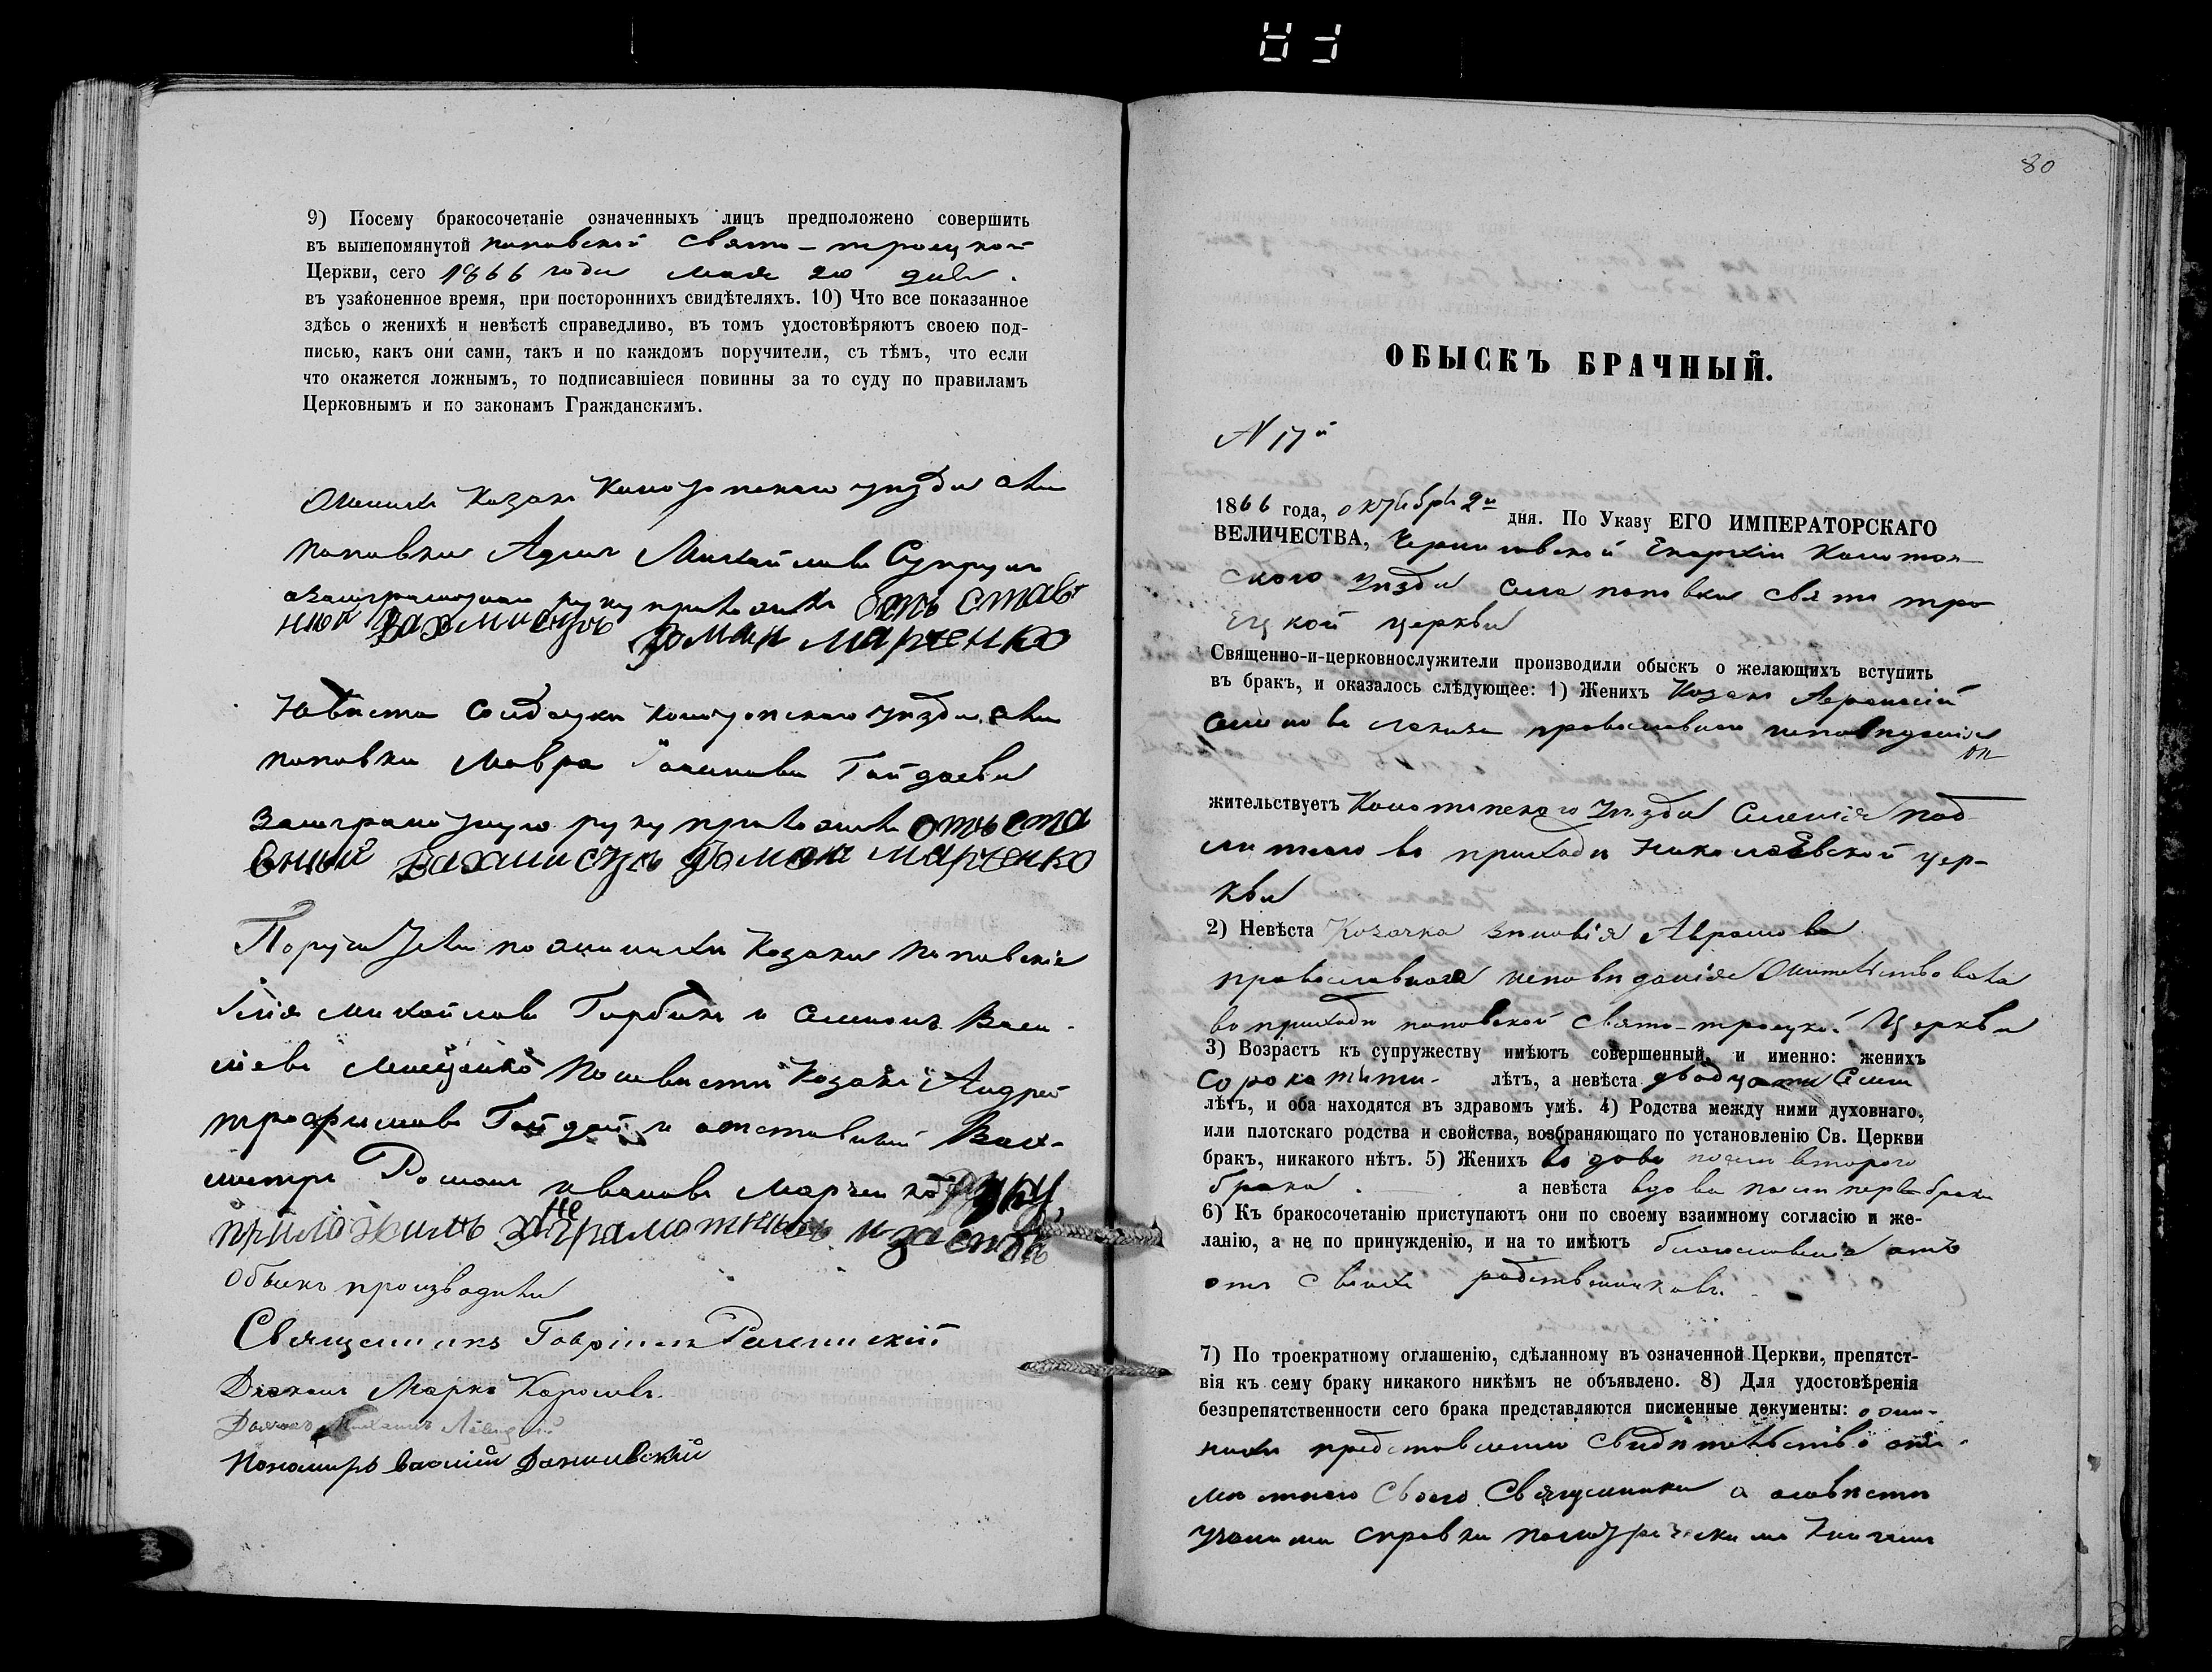 9) Посему бракосочетаніе означенныхъ лицъ предположено совершить
въ вышепомянутой поповской Свято-троецкой
Церкви, сего 1866 года мая 20 дня.
въ узаконенное время, при постороннихъ свидѣтеляхъ. 10) Что все показанное
здѣсь о женихѣ и невѣстѣ справедливо, въ томъ удостовѣряютъ своею под-
писью, какъ они сами, такъ и по каждомъ поручители, съ тѣмъ, что если
что окажется ложнымъ, то подписавшіеся повинны за то суду по правиламъ
Церковнымъ и по законамъ Гражданскимъ.
Женихъ Козакъ уѣзда
поповки Михайловъ Супрунъ
руку Отъ став
ний Вахмистръ Роман марченко
Невѣста уѣзда
поповки Мавра Гайдаева
руку отъ ста
вний Вахмистръ Роман марченко
Поручители по женихѣ Козаки поповскіе
Илія михайловъ Горбань и Семенъ Васи-
лиевъ По невѣсти Козакъ Андрей
трофимовъ Гайдай и отставний Вах-
мистръ Романъ ивановъ Марченко руку
приложилъ за неграмотныхъ и за себя
Обыскъ производили
Священникъ Гавріилъ
Діаконъ Марко
Дьячокъ Михаилъ
Пономарь Василій Даниловский
80
ОБЫСКЪ БРАЧНЫЙ.
N 17й
1866 года, октября 2го дня. По Указу ЕГО ИМПЕРАТОРСКАГО
ВЕЛИЧЕСТВА, Черниговской Епархіи Конотоп-
ского уѣзда Села поповки Свято тро
ецкой церкви
Священно-и-церковнослужители производили обыскъ о желающихъ вступить
въ бракъ, и оказалось слѣдующее: 1) Женихъ Козакъ Афанасій
православнаго исповѣданія
он
жительствуетъ Конотопскаго уѣзда Селенія под
липного въ приходѣ Николаевской цер-
кви
2) Невѣста Козачка Зиновія Аврамова
православнаго исповѣданія жительствовала
въ приходѣ поповской Свято-троецкой Церкви
3) Возрастъ къ супружеству имѣютъ совершенный, и именно: женихъ
Сорока пяти лѣтъ, а невѣста двадцати Семи
лѣтъ, и оба находятся въ здравомъ умѣ. 4) Родства между ними духовнаго,
или плотскаго родства и свойства, возбраняющаго по установленію Св. Церкви
бракъ, никакого нѣтъ. 5) Женихъ вдовъ после второго
брака. а невѣста вдова после перв брака
6) Къ бракосочетанію приступаютъ они по своему взаимному согласію и же-
ланію, а не по принужденію, и на то имѣютъ благословеніе отъ
отъ своихъ родственниковъ.
7) По троекратному оглашенію, сдѣланному въ означенной Церкви, препятст-
вія къ сему браку никакого никѣмъ не объявлено. 8) Для удостовѣренія
безпрепятственности сего брака представляются письменные документы: о же-
нихѣ представлено свидѣтельство отъ
мѣстного своего Священника а о невѣсти
учинена справка по метрическимъ книгамъ